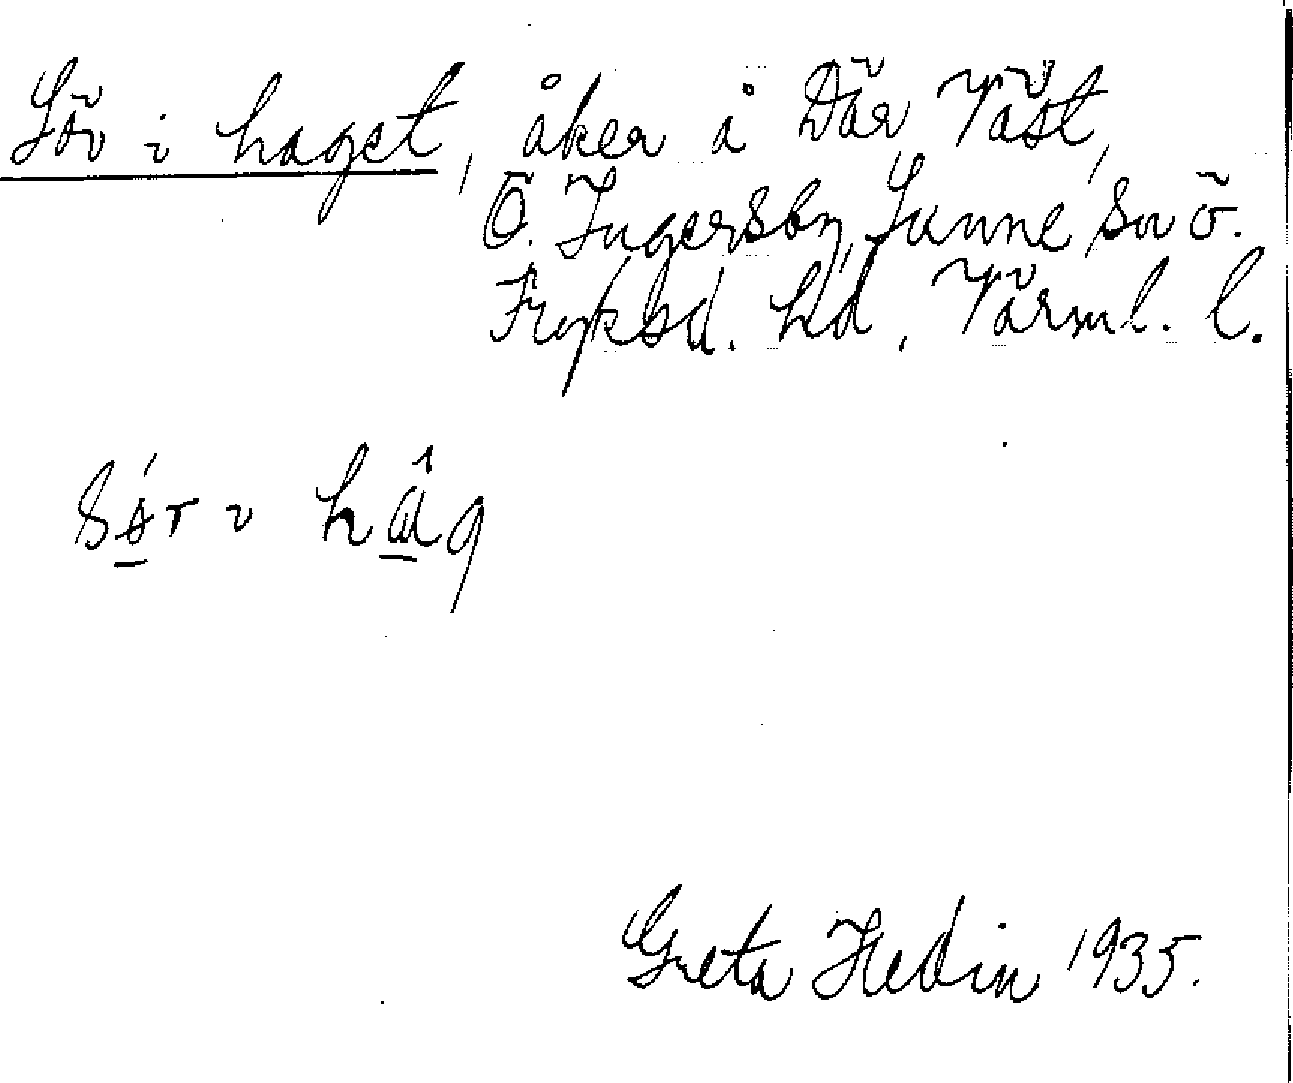 Sör i haget, åker å Där Väst,
Ö. Ingersby, Sunne sn ö.
Fryksd. hd, Värml. l.
sör i hâg
Greta Hedin 1935.